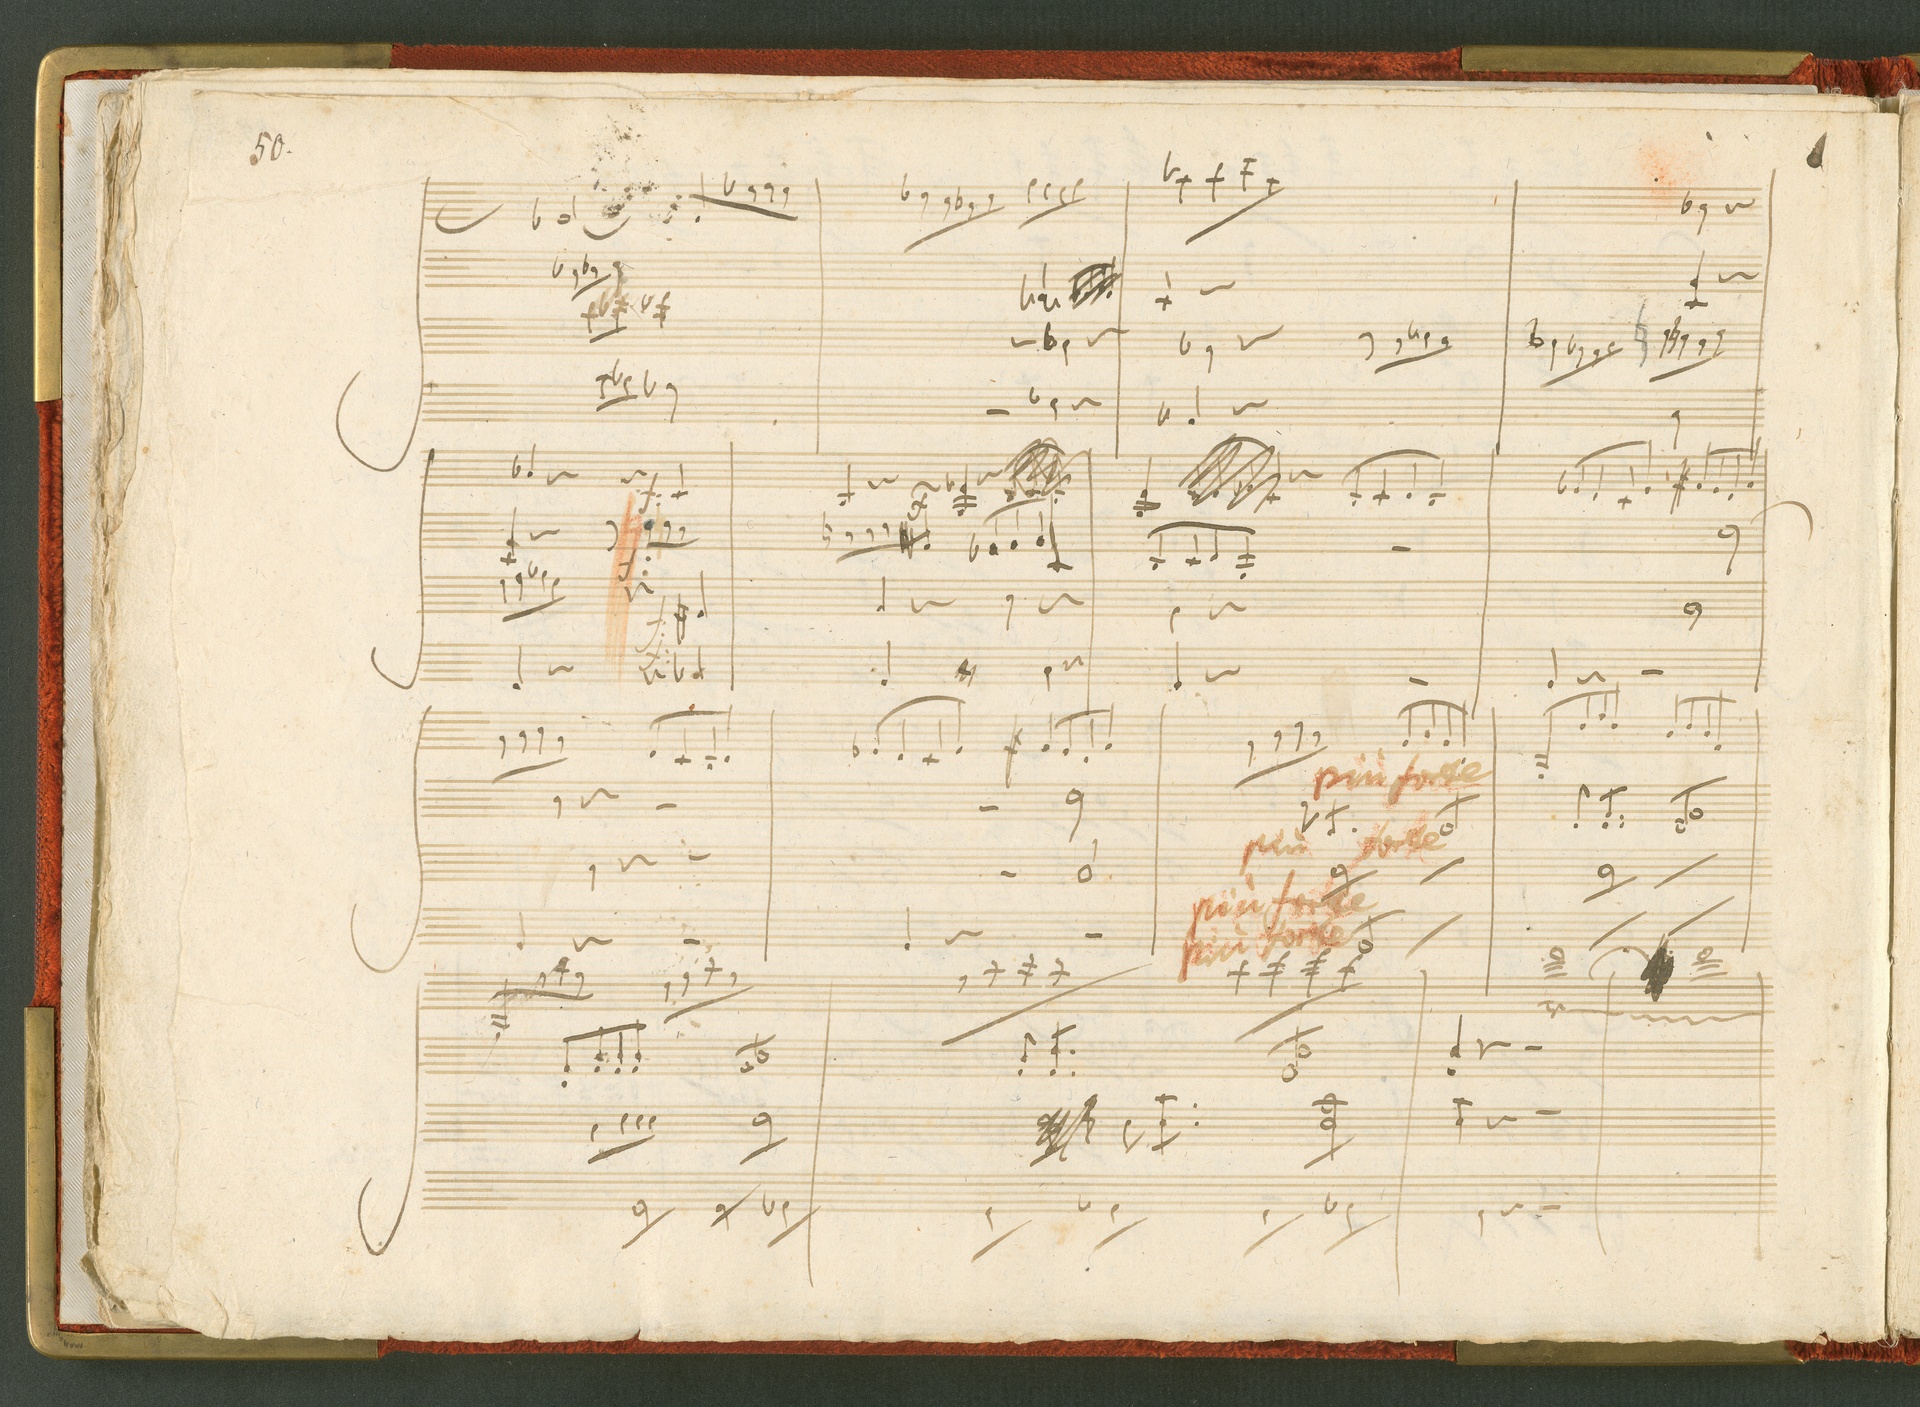 50.
più forte
più forte
più forte
più forte